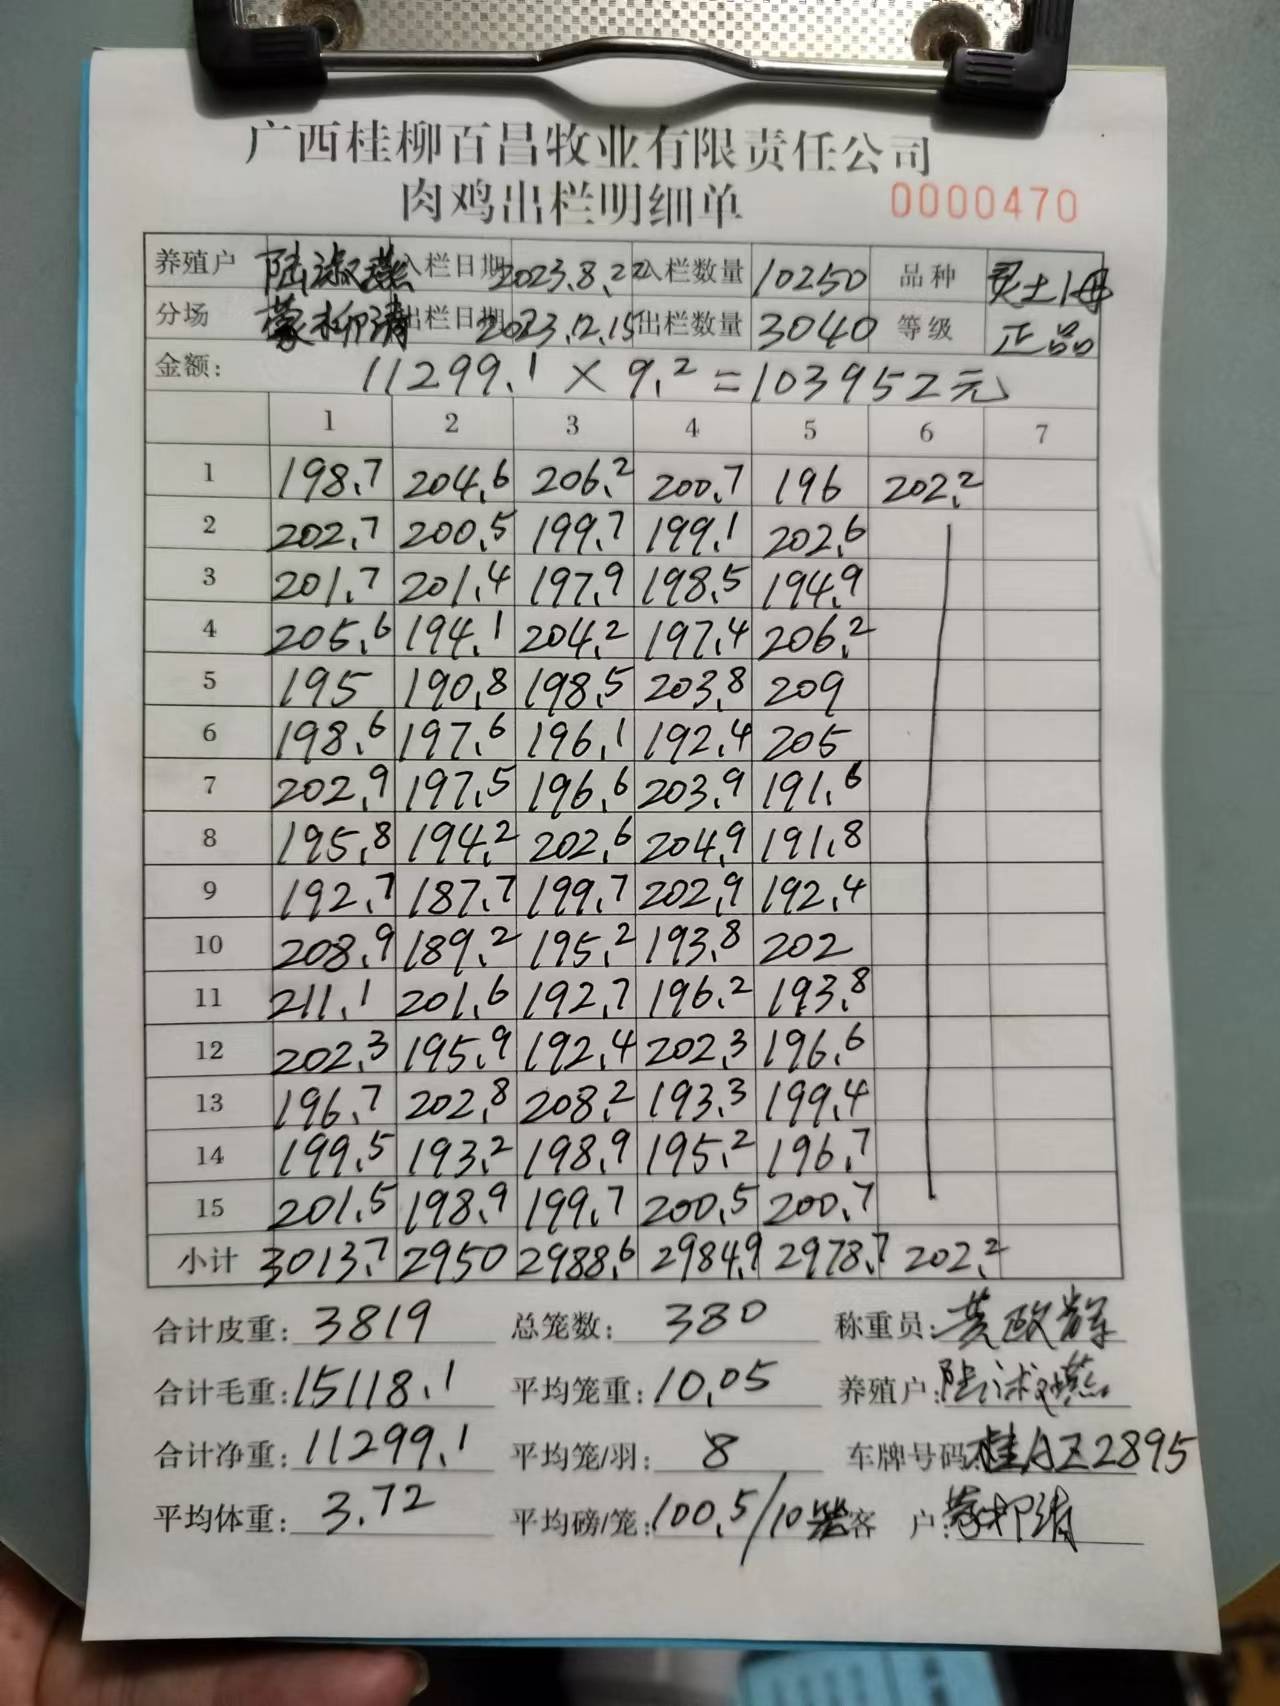 广西桂柳百昌牧业有限责任公司
肉鸡出栏明细单 0000470
养殖户 陆淑燕 入栏日期 2023.8.22 入栏数量 10250 品种 灵土1母
分场 蒙柳清 出栏日期 2023.12.15 出栏数量 3040 等级 正品
金额: 11299.1 × 9.2 = 103952元
1 2 3 4 5 6 7
1 198.7 204.6 206.2 200.7 196 202.2
2 202.7 200.5 199.7 199.1 202.6
3 201.7 201.4 197.9 198.5 194.9
4 205.6 194.1 204.2 197.4 206.2
5 195 190.8 198.5 203.8 209
6 198.6 197.6 196.1 192.4 205
7 202.9 197.5 196.6 203.9 191.6
8 195.8 194.2 202.6 204.9 191.8
9 192.7 187.7 199.7 202.9 192.4
10 208.9 189.2 195.2 193.8 202
11 211.1 201.6 192.7 196.2 193.8
12 202.3 195.9 192.4 202.3 196.6
13 196.7 202.8 208.2 193.3 199.4
14 199.5 193.2 198.9 195.2 196.7
15 201.5 198.9 199.7 200.5 200.7
小计 3013.7 2950 2988.6 2984.9 2978.7 202.2
合计皮重: 3819 总笼数: 380 称重员: 黄政辉
合计毛重: 15118.1 平均笼重: 10.05 养殖户: 陆淑燕
合计净重: 11299.1 平均笼/羽: 8 车牌号码: 桂AZ2895
平均体重: 3.72 平均磅/笼: 100.5/10笼 客 户: 蒙柳清